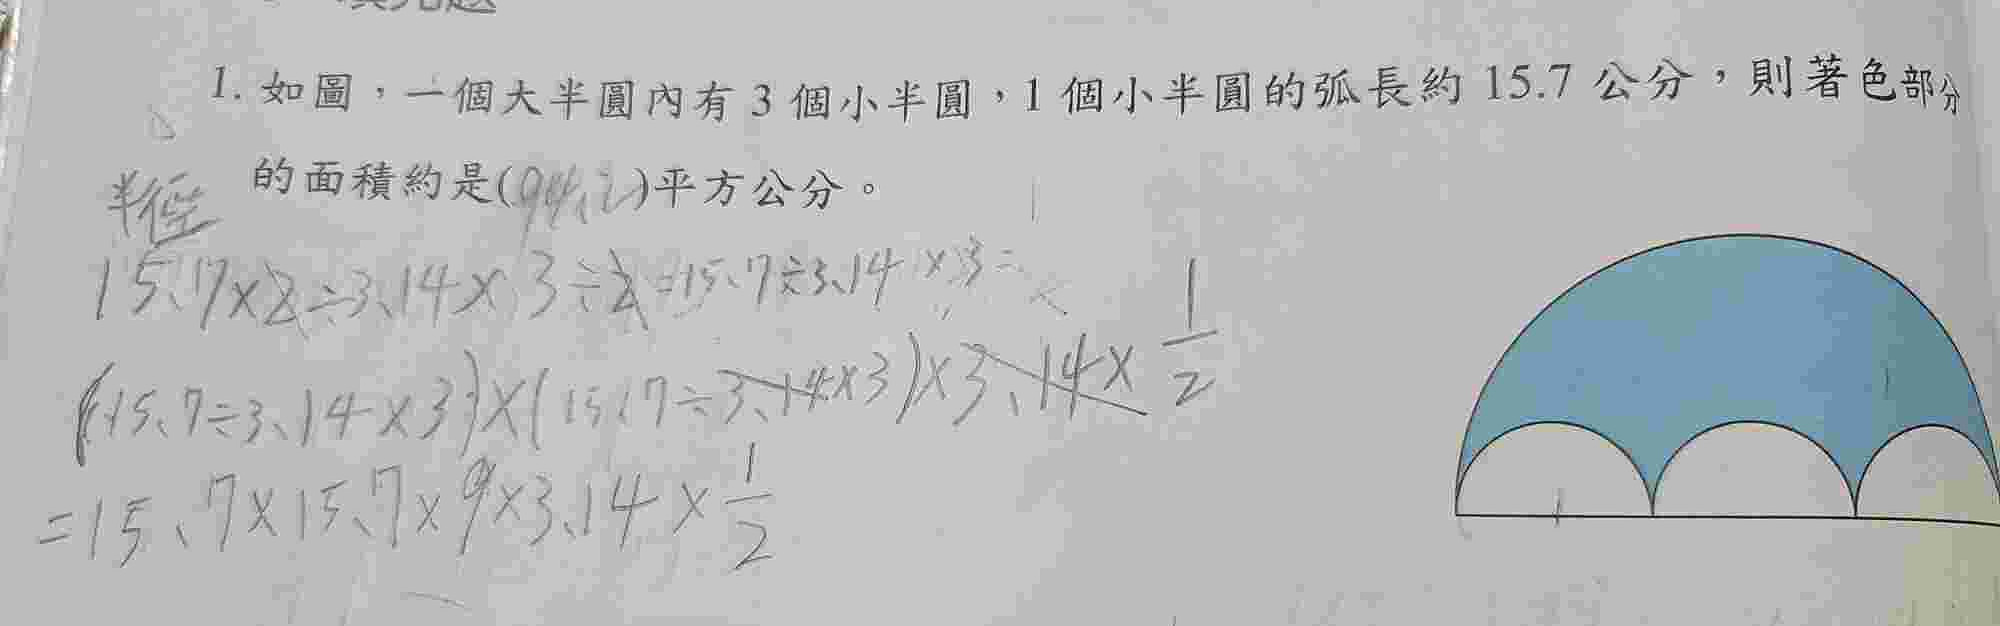 1. 如圖，一個大半圓內有3個小半圓，1個小半圓的弧長約15.7公分，則著色部分
的面積約是(94.2)平方公分。
半徑
15.7×2÷3.14×3÷2=15.7÷3.14×3=
(15.7÷3.14×3)×(15.7÷3.14×3)×3.14×1/2
=15.7×15.7×9×3.14×1/2